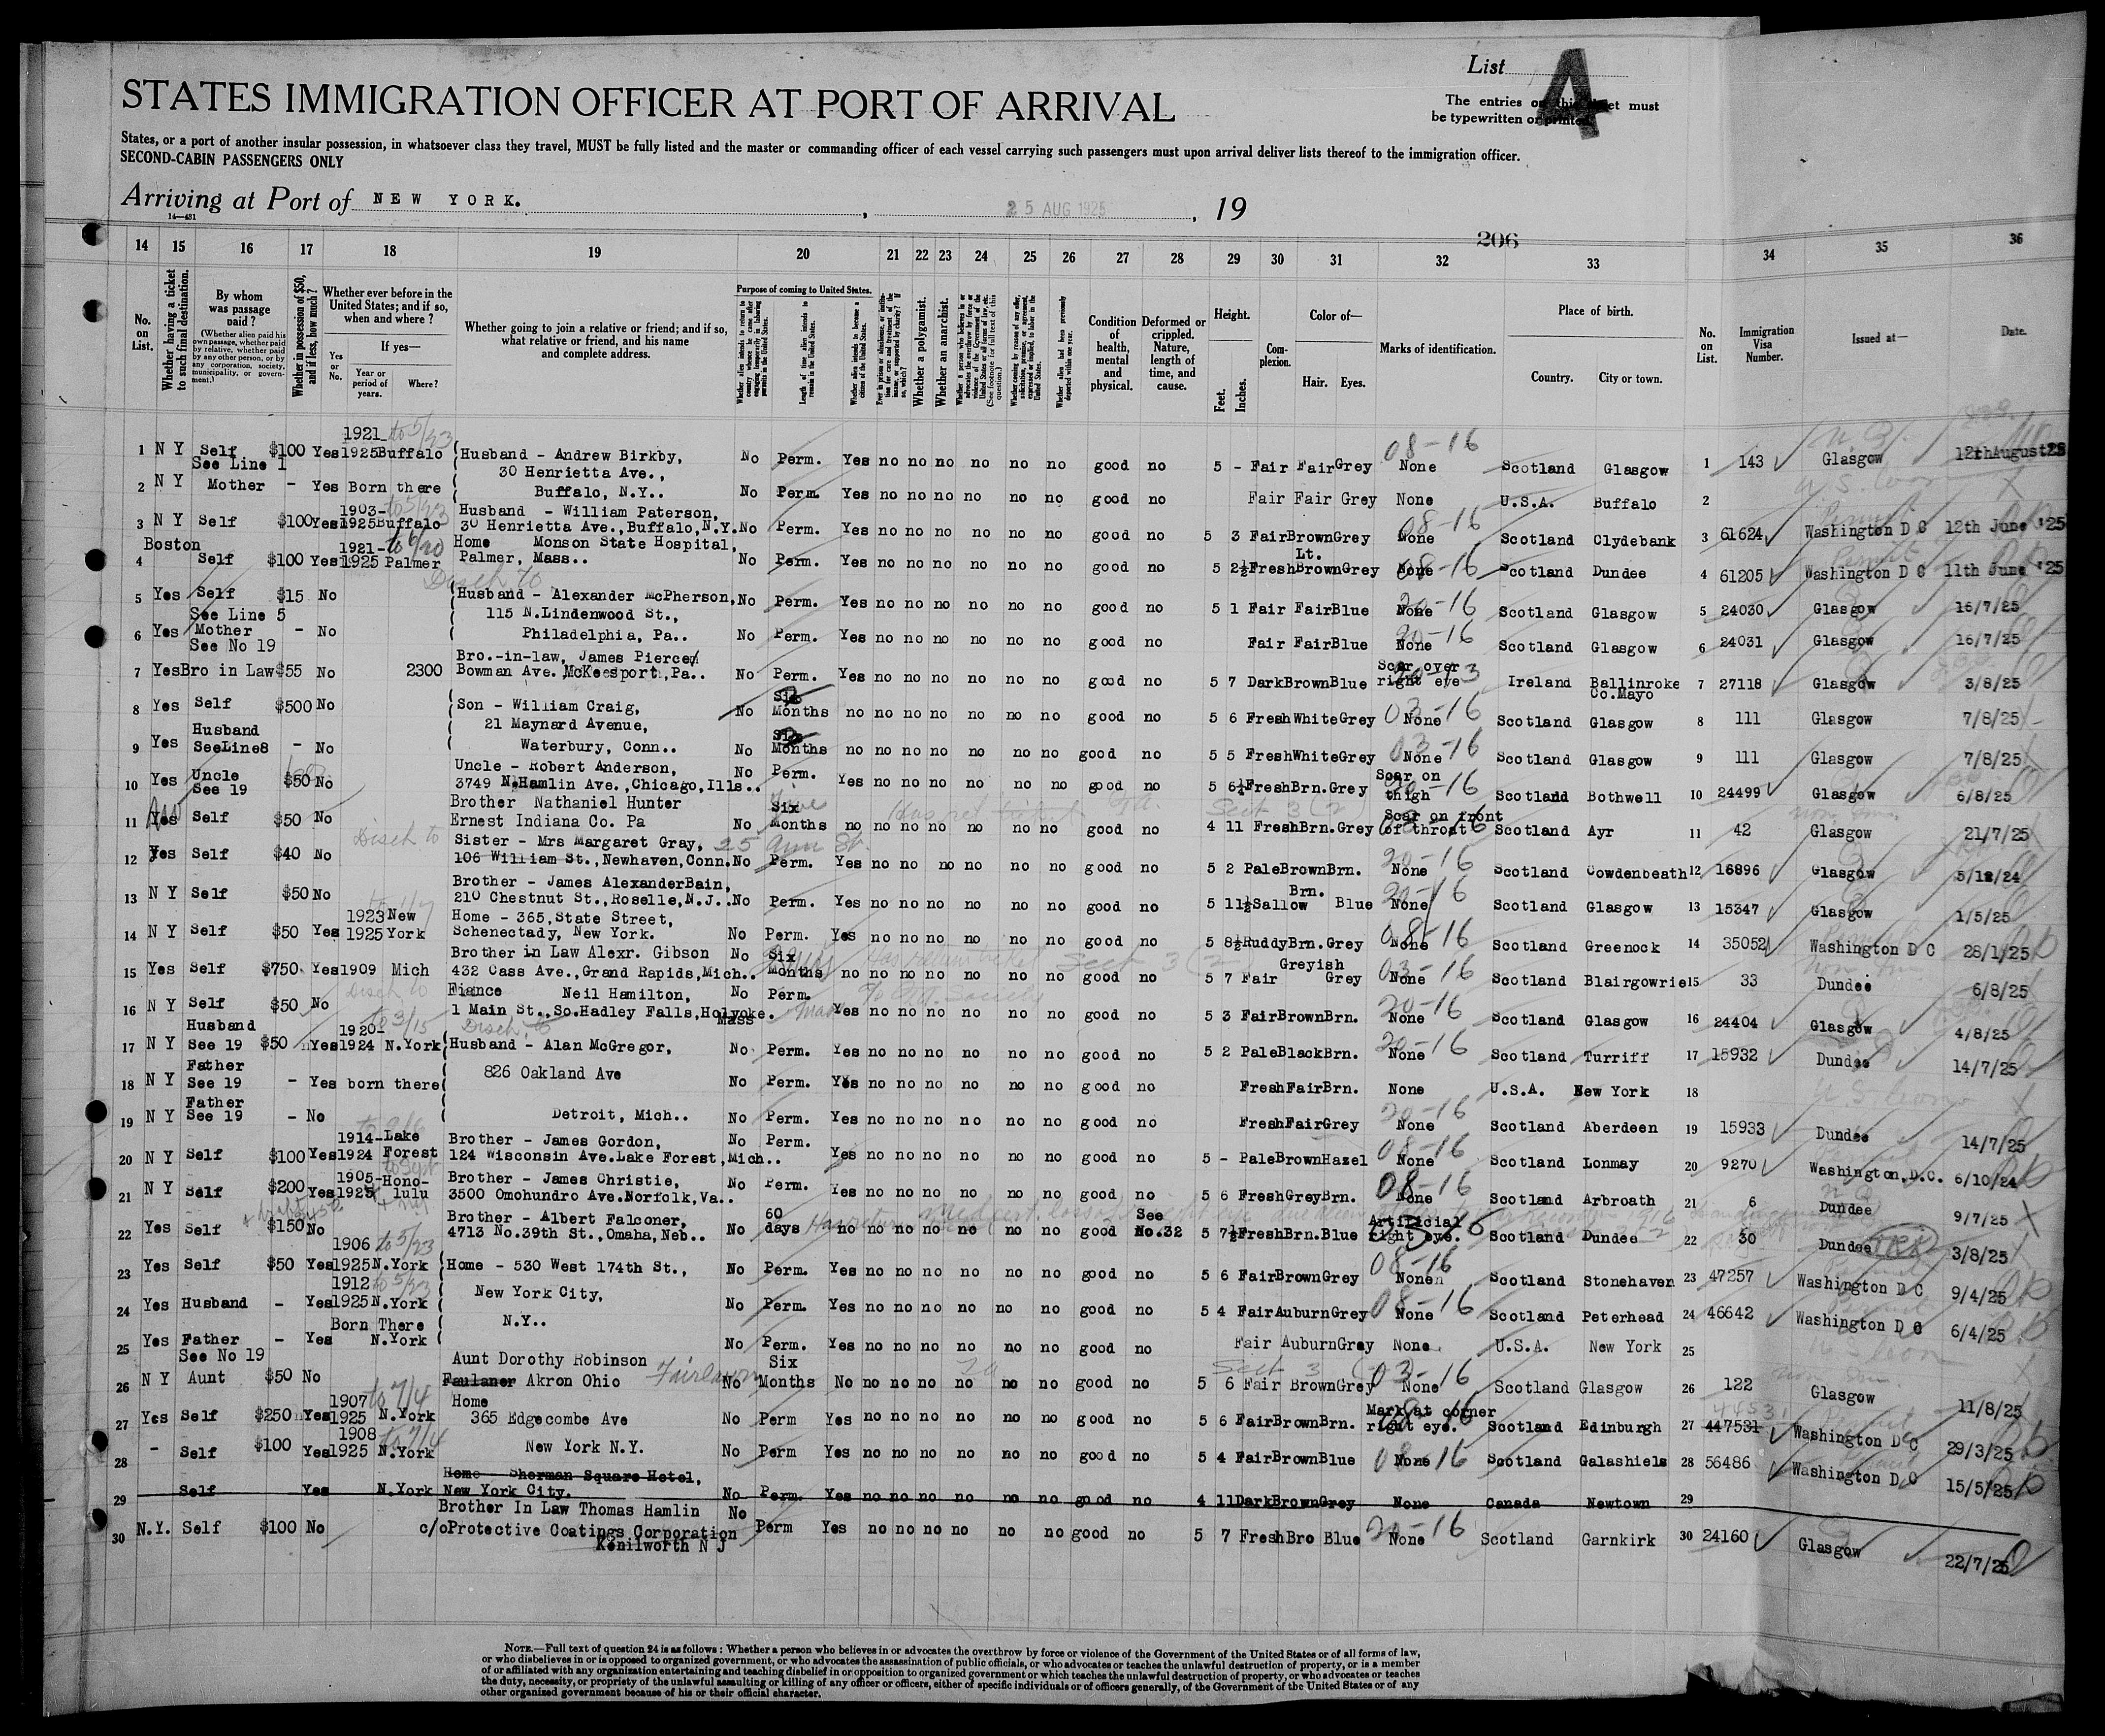 List A
STATES IMMIGRATION OFFICER AT PORT OF ARRIVAL
The entries on this sheet must
be typewritten or printed.
States, or a port of another insular possession, in whatsoever class they travel, MUST be fully listed and the master or commanding officer of each vessel carrying such passengers must upon arrival deliver lists thereof to the immigration officer.
SECOND-CABIN PASSENGERS ONLY
Arriving at Port of NEW YORK. , 25 AUG 1925 , 19
14—431
206
14 15 16 17 18 19 20 21 22 23 24 25 26 27 28 29 30 31 32 33 34 35 36
No. on List.
Whether having a ticket to such final destination.
By whom was passage paid?
(Whether alien paid his own passage, whether paid by relative, whether paid by any other person, or by any corporation, society, municipality, or government.)
Whether in possession of $50, and if less, how much?
Whether ever before in the United States; and if so, when and where?
Yes or No.
If yes—
Year or period of years.
Where?
Whether going to join a relative or friend; and if so, what relative or friend, and his name and complete address.
Purpose of coming to United States.
Length of time alien intends to remain in the United States.
Whether alien intends to become a citizen of the United States.
Whether a polygamist.
Whether an anarchist.
Condition of health, mental and physical.
Deformed or crippled. Nature, length of time, and cause.
Height.
Feet. Inches.
Complexion.
Color of—
Hair. Eyes.
Marks of identification.
Place of birth.
Country. City or town.
No. on List.
Immigration Visa Number.
Issued at—
Date.
1921- to 5/23
1 N Y Self $100 Yes 1925 Buffalo Husband - Andrew Birkby, No Perm. Yes no no no no no no good no 5 - Fair Fair Grey 08-16 None Scotland Glasgow 1 143 Glasgow 12th August 25
See Line 1 30 Henrietta Ave.,
2 N Y Mother - Yes Born there Buffalo, N.Y.. No Perm. Yes no no no no no no good no Fair Fair Grey None U.S.A. Buffalo 2
1903- to 5/23 Husband - William Paterson,
3 N Y Self $100 Yes 1925 Buffalo 30 Henrietta Ave., Buffalo, N.Y. No Perm. Yes no no no no no no good no 5 3 Fair Brown Grey 08-16 None Scotland Clydebank 3 61624 Washington D C 12th June '25
Boston 1921- to 6/20 Home Monson State Hospital, Lt.
4 Self $100 Yes 1925 Palmer Palmer, Mass.. No Perm. Yes no no no no no no good no 5 2½ Fresh Brown Grey 08-16 None Scotland Dundee 4 61205 Washington D C 11th June '25
5 Yes Self $15 No Husband - Alexander McPherson, No Perm. Yes no no no no no no good no 5 1 Fair Fair Blue 20-16 None Scotland Glasgow 5 24030 Glasgow 16/7/25
See Line 5 115 N.Lindenwood St.,
6 Yes Mother - No Philadelphia, Pa.. No Perm. Yes no no no no no no good no Fair Fair Blue 20-16 None Scotland Glasgow 6 24031 Glasgow 16/7/25
See No 19 Bro.-in-law, James Pierce Scar over
7 Yes Bro in Law $55 No 2300 Bowman Ave. McKeesport, Pa.. No Perm. Yes no no no no no no good no 5 7 Dark Brown Blue right eye Ireland Ballinroke Co.Mayo 7 27118 Glasgow 3/8/25
8 Yes Self $500 No Son - William Craig, No Six Months no no no no no no no good no 5 6 Fresh White Grey 03-16 None Scotland Glasgow 8 111 Glasgow 7/8/25
Husband 21 Maynard Avenue,
9 Yes See Line 8 - No Waterbury, Conn.. No Six Months no no no no no no no good no 5 5 Fresh White Grey 03-16 None Scotland Glasgow 9 111 Glasgow 7/8/25
Uncle - Robert Anderson, Scar on
10 Yes Uncle See 19 $50 No 3749 N.Hamlin Ave., Chicago, Ills.. No Perm. Yes no no no no no no good no 5 6½ Fresh Brn. Grey thigh Scotland Bothwell 10 24499 Glasgow 6/8/25
Brother Nathaniel Hunter Six Scar on front
11 Yes Self $50 No Ernest Indiana Co. Pa No Months no no no no no no no good no 4 11 Fresh Brn. Grey of throat Scotland Ayr 11 42 Glasgow 21/7/25
Disch to Sister - Mrs Margaret Gray, 25 Ann St.
12 Yes Self $40 No 106 William St., Newhaven, Conn. No Perm. Yes no no no no no no good no 5 2 Pale Brown Brn. 20-16 None Scotland Cowdenbeath 12 16896 Glasgow 5/12/24
Brother - James Alexander Bain, Brn.
13 N Y Self $50 No 210 Chestnut St., Roselle, N.J.. No Perm. Yes no no no no no no good no 5 11½ Sallow Blue 20-16 None Scotland Glasgow 13 15347 Glasgow 1/5/25
1923 New Home - 365, State Street,
14 N Y Self $50 Yes 1925 York Schenectady, New York. No Perm. Yes no no no no no no good no 5 8½ Ruddy Brn. Grey 08-16 None Scotland Greenock 14 35052 Washington D C 28/1/25
Brother in Law Alexr. Gibson Six Greyish
15 Yes Self $750 Yes 1909 Mich 432 Cass Ave., Grand Rapids, Mich.. No Months no no no no no no no good no 5 7 Fair Grey 03-16 None Scotland Blairgowrie 15 33 Dundee 6/8/25
Disch to Fiance Neil Hamilton,
16 N Y Self $50 No 1 Main St., So.Hadley Falls, Holyoke. Mass No Perm. Yes no no no no no no good no 5 3 Fair Brown Brn. 20-16 None Scotland Glasgow 16 24404 Glasgow 4/8/25
Husband 1920- to 3/15 Disch to
17 N Y See 19 $50 Yes 1924 N.York Husband - Alan McGregor, No Perm. Yes no no no no no no good no 5 2 Pale Black Brn. 20-16 None Scotland Turriff 17 15932 Dundee 14/7/25
Father 826 Oakland Ave
18 N Y See 19 - Yes born there No Perm. Yes no no no no no no good no Fresh Fair Brn. None U.S.A. New York 18
Father
19 N Y See 19 - No Detroit, Mich.. No Perm. Yes no no no no no no good no Fresh Fair Grey 20-16 None Scotland Aberdeen 19 15933 Dundee 14/7/25
1914- Lake Brother - James Gordon,
20 N Y Self $100 Yes 1924 Forest 124 Wisconsin Ave. Lake Forest, Mich.. No Perm. Yes no no no no no no good no 5 - Pale Brown Hazel 08-16 None Scotland Lonmay 20 9270 Washington, D.C. 6/10/24
1905- Hono- Brother - James Christie,
21 N Y Self $200 Yes 1925 lulu 3500 Omohundro Ave. Norfolk, Va.. No Perm. Yes no no no no no no good no 5 6 Fresh Grey Brn. 08-16 None Scotland Arbroath 21 6 Dundee 9/7/25
Brother - Albert Falconer, 60 See Artificial
22 Yes Self $150 No 4713 No.39th St., Omaha, Neb.. No days no no no no no no no good No.32 5 7½ Fresh Brn. Blue right eye. Scotland Dundee 22 30 Dundee 3/8/25
1906 to 5/23
23 Yes Self $50 Yes 1925 N.York Home - 530 West 174th St., No Perm. Yes no no no no no no good no 5 6 Fair Brown Grey 08-16 None Scotland Stonehaven 23 47257 Washington D C 9/4/25
1912 to 5/23 New York City,
24 Yes Husband - Yes 1925 N.York N.Y.. No Perm. Yes no no no no no no good no 5 4 Fair Auburn Grey 08-16 None Scotland Peterhead 24 46642 Washington D C 6/4/25
Born There
25 Yes Father - Yes N.York No Perm. Yes no no no no no no good no Fair Auburn Grey None U.S.A. New York 25
See No 19 Aunt Dorothy Robinson Six
26 N Y Aunt $50 No Faulaner Akron Ohio Fairlawn No Months No no no no no no no good no 5 6 Fair Brown Grey 03-16 None Scotland Glasgow 26 122 Glasgow 11/8/25
1907 to 7/4 Home Mark at corner
27 Yes Self $250 Yes 1925 N.York 365 Edgecombe Ave No Perm Yes no no no no no no good no 5 6 Fair Brown Brn. right eye. 08-16 Scotland Edinburgh 27 447531 Washington D C 29/3/25
1908 to 7/4
28 - Self $100 Yes 1925 N.York New York N.Y. No Perm Yes no no no no no no good no 5 4 Fair Brown Blue 08-16 None Scotland Galashiels 28 56486 Washington D C 15/5/25
Home Sherman Square Hotel,
29 Self Yes N.York New York City. No Perm. Yes no no no no no no good no 4 11 Dark Brown Grey None Canada Newtown 29
Brother In Law Thomas Hamlin
30 N.Y. Self $100 No c/o Protective Coatings Corporation No Perm Yes no no no no no no good no 5 7 Fresh Bro Blue 20-16 None Scotland Garnkirk 30 24160 Glasgow 22/7/25
Kenilworth N J
NOTE.—Full text of question 24 is as follows: Whether a person who believes in or advocates the overthrow by force or violence of the Government of the United States or of all forms of law,
or who disbelieves in or is opposed to organized government, or who advocates the assassination of public officials, or who advocates or teaches the unlawful destruction of property, or is a member
of or affiliated with any organization entertaining and teaching disbelief in or opposition to organized government or which teaches the unlawful destruction of property, or who advocates or teaches
the duty, necessity, or propriety of the unlawful assaulting or killing of any officer or officers, either of specific individuals or of officers generally, of the Government of the United States or of any
other organized government because of his or their official character.